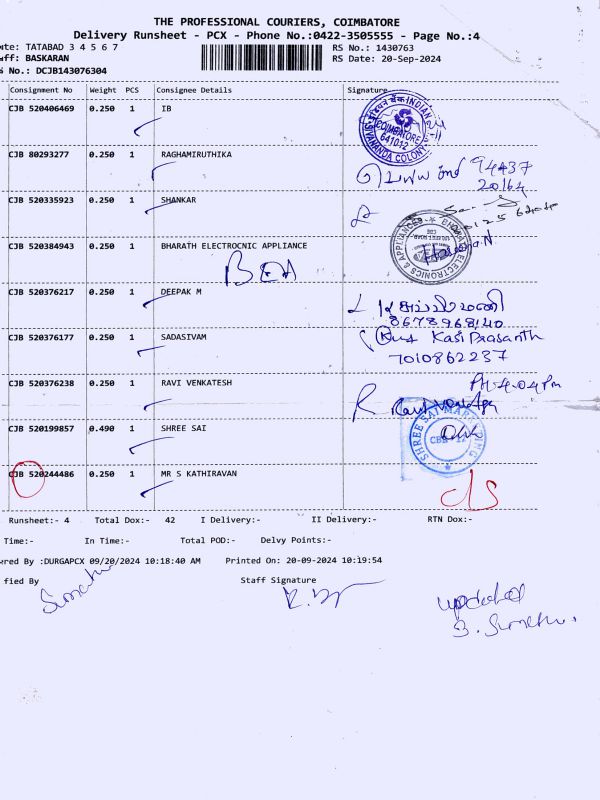 THE PROFESSIONAL COURIERS, COIMBATORE
Delivery Runsheet - PCX - Phone No.:0422-3505555 - Page No.:4
TATABAD 3 4 5 6 7
RS No.: 1430763
BASKARAN
RS Date: 20-Sep-2024
No.: DCJB143076304
Consignment No Weight PCS Consignee Details Signature
CJB 520406469 0.250 1 IB
COIMBATORE
641012
CJB 80293277 0.250 1 RAGHAMIRUTHIKA
94437
20164
CJB 520335923 0.250 1 SHANKAR
CJB 520384943 0.250 1 BHARATH ELECTROCNIC APPLIANCE
BEA
CJB 520376217 0.250 1 DEEPAK M
8678968140
CJB 520376177 0.250 1 SADASIVAM
Kasi Prasanth
7010862237
CJB 520376238 0.250 1 RAVI VENKATESH
CJB 520199857 0.490 1 SHREE SAI
SHREE SAI MARKETING
CJB 520244486 0.250 1 MR S KATHIRAVAN
Runsheet:- 4 Total Dox:- 42 I Delivery:- II Delivery:- RTN Dox:-
Time:- In Time:- Total POD:- Delvy Points:-
ered By :DURGAPCX 09/20/2024 10:18:40 AM Printed On: 20-09-2024 10:19:54
fied By Staff Signature
updated